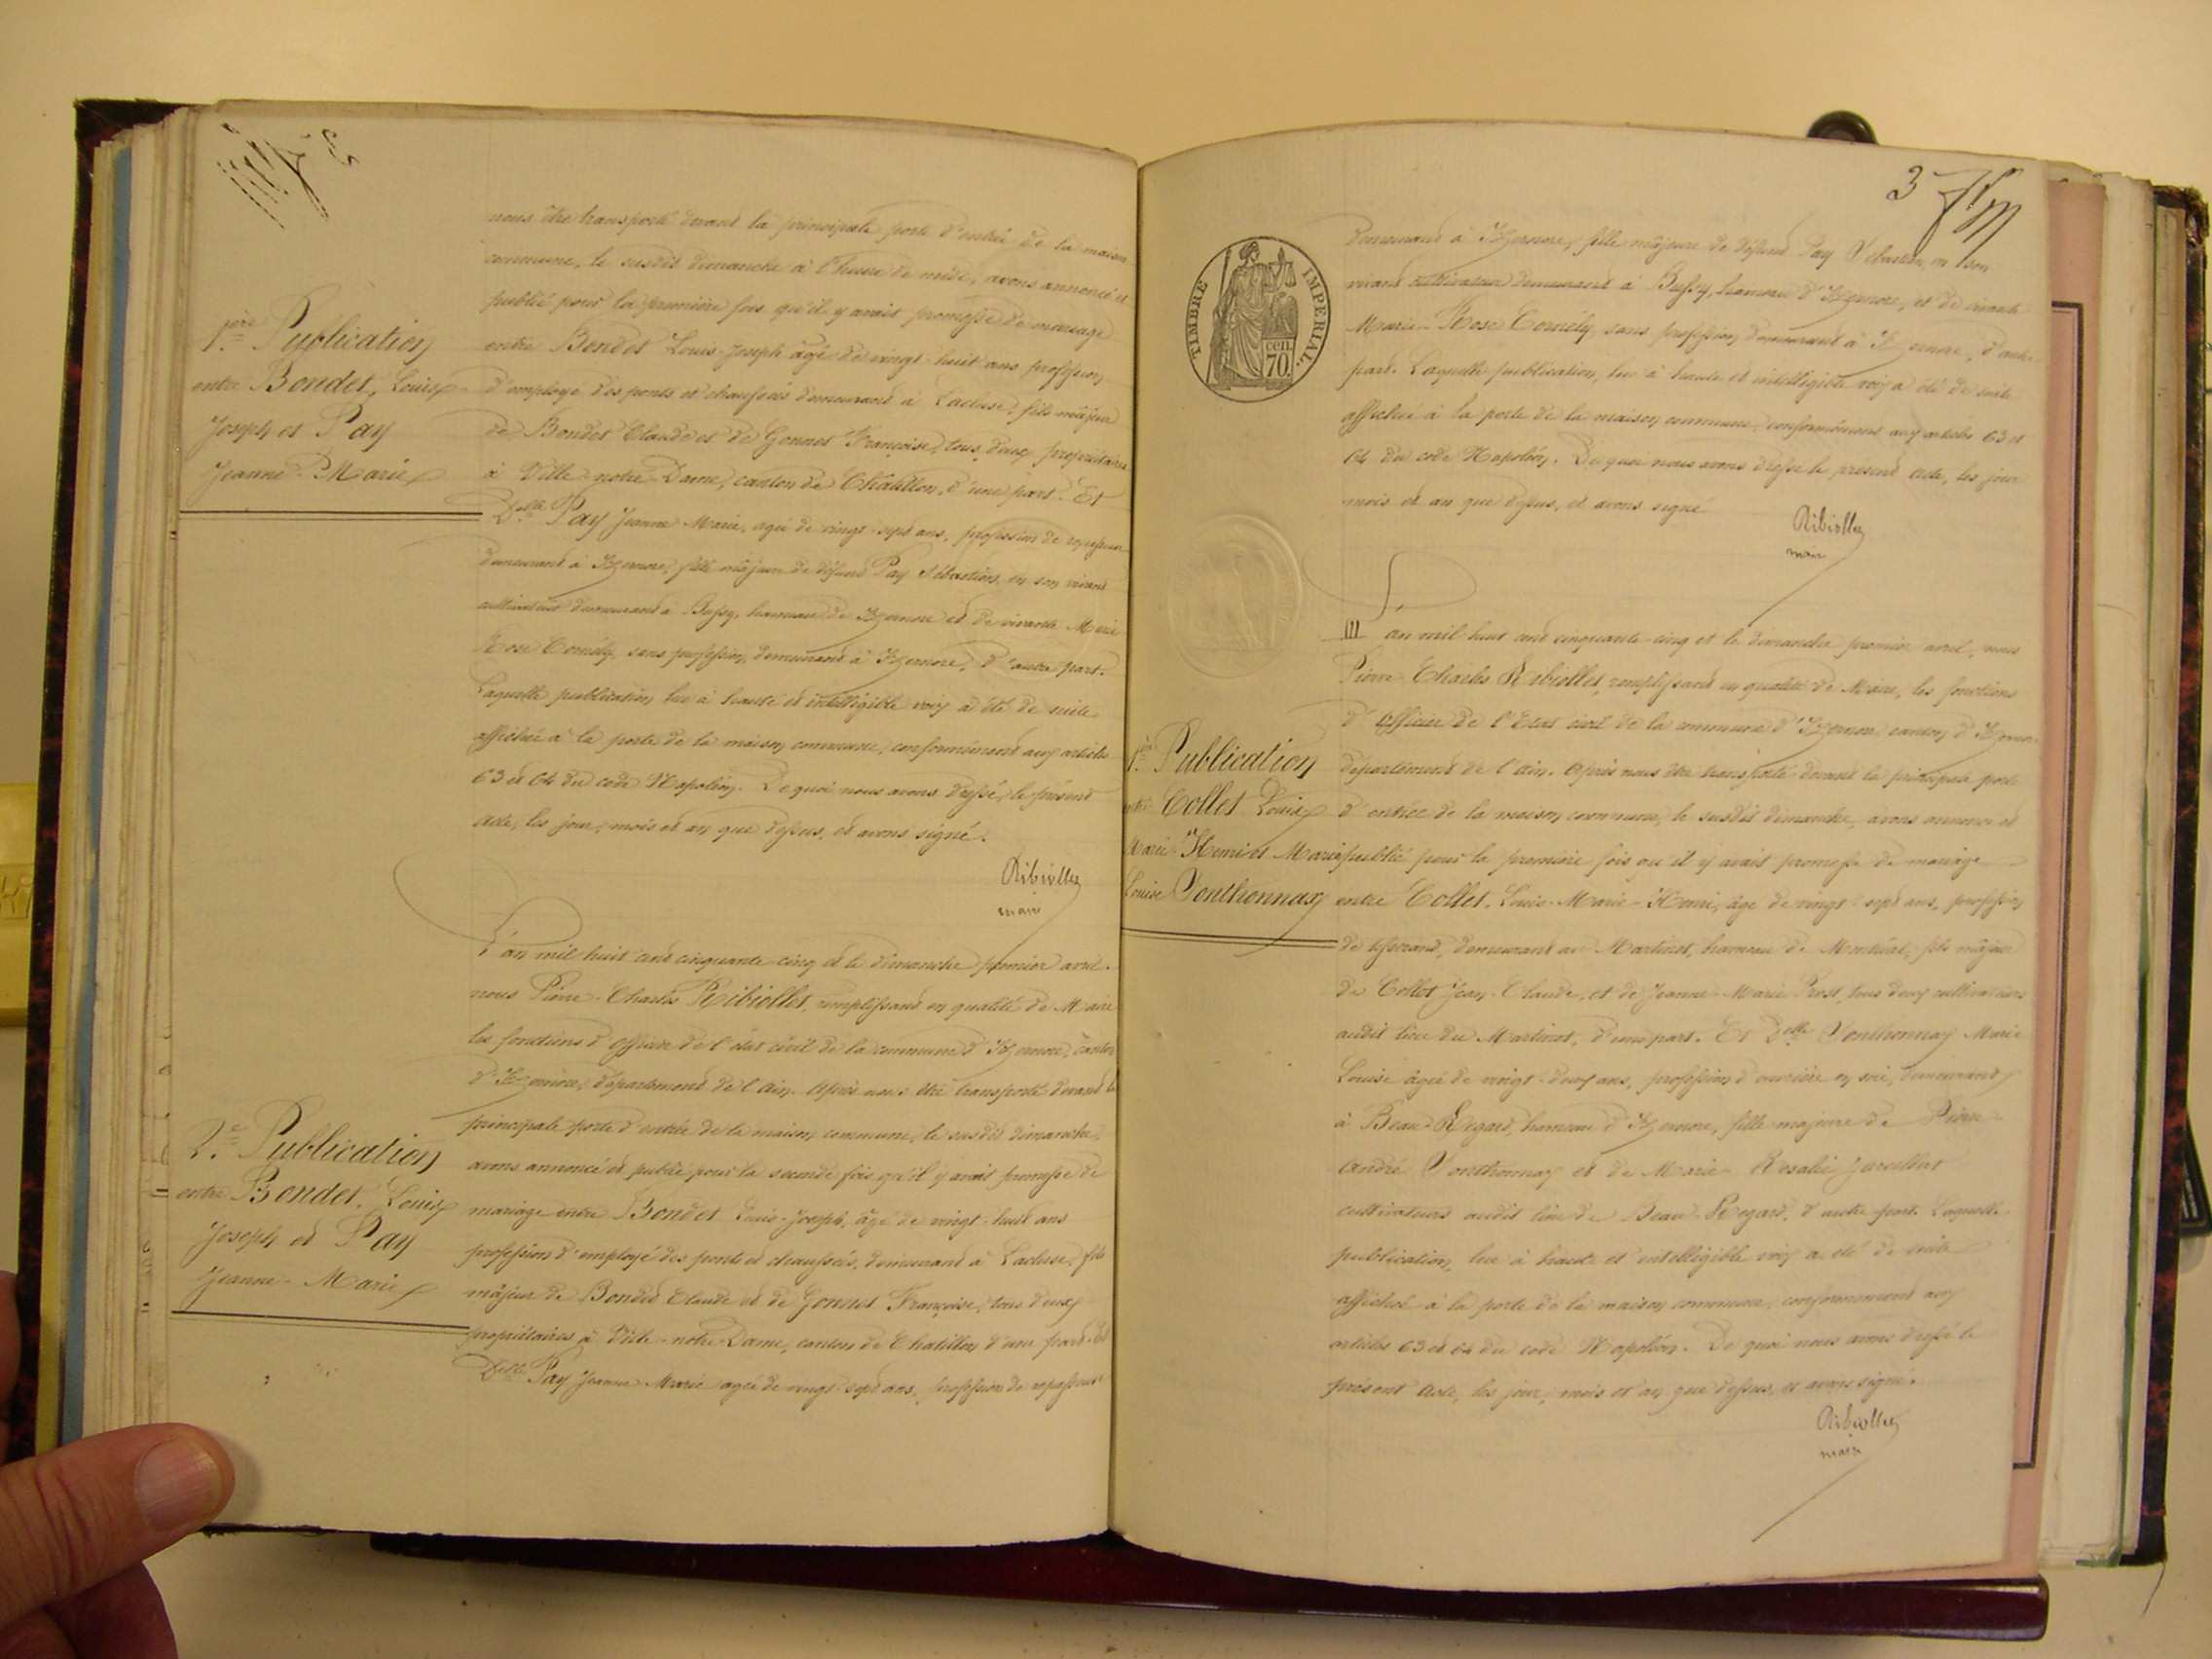 nous être transporté devant la principale porte d'entrée de la maison
commune, le susdit dimanche à l'heure de midi, avons annoncé et
publié pour la première fois qu'il y avait promesse de mariage
1.ère Publication
entre Bondet, Louis
Joseph et Pay
Jeanne-Marie
entre Bondet Louis-Joseph âgé de vingt-huit ans profession
d'employé des ponts et chaussées demeurant à Lacluse, fils majeur
de Bondet Claude et de Gonnet Françoise, tous deux propriétaires
à Ville-notre-Dame, canton de Châtillon, d'une part. Et
Delle Pay Jeanne-Marie, agée de vingt-sept ans, profession de repasseuse
demeurant à Izernore, fille majeure de défunt Pay Sébastien, en son vivant
cultivateur demeurant à Bussy, hameau de Izernore et de vivante Marie
Rose Comély, sans profession, demeurant à Izernore, d'autre part.
Laquelle publication lue à haute et intelligible voix a été de suite
affichée à la porte de la maison commune, conformément aux articles
63 et 64 du code Napoléon. De quoi nous avons dressé le présent
acte, les jour, mois et an que dessus, et avons signé.
Ribiollet
maire
L'an mil huit cent cinquante cinq et le dimanche premier avril.
nous Pierre-Charles Ribiollet, remplissant en qualité de Maire
les fonctions d'officier de l'état civil de la commune d'Izernore, canton
d'Izernore, département de l'Ain. Après nous être transporté devant la
principale porte d'entrée de la maison commune, le susdit dimanche,
2.e Publication
entre Bondet, Louis
Joseph et Pay
Jeanne-Marie
avons annoncé et publié pour la seconde fois qu'il y avait promesse de
mariage entre Bondet Louis-Joseph, âgé de vingt-huit ans
profession d'employé des ponts et chaussées, demeurant à Lacluse, fils
majeur de Bondet Claude et de Gonnet Françoise, tous deux
propriétaires à Ville-notre-Dame, canton de Chatillon d'une part. Et
Delle Pay Jeanne-Marie agée de vingt-sept ans, profession de repasseuse
3
TIMBRE IMPERIAL.
cen.
70.
demeurant à Izernore, fille majeure de défunt Pay Sébastien, en son
vivant cultivateur demeurant à Bussy, hameau d'Izernore, et de vivante
Marie-Rose Comély, sans profession, demeurant à Izernore, d'autre
part. Laquelle publication, lue à haute et intelligible voix a été de suite
affichée à la porte de la maison commune, conformément aux articles 63 et
64 du code Napoléon. De quoi nous avons dressé le présent acte, les jour
mois et an que dessus, et avons signé
Ribiollet
maire
L'an mil huit cent cinquante-cinq et le dimanche premier avril, nous
Pierre Charles Ribiollet, remplissant en qualité de Maire, les fonctions
d'Officier de l'Etat civil de la commune d'Izernore canton d'Izernore
département de l'Ain. Après nous être transporté devant la principale porte
d'entrée de la maison commune, le susdit dimanche, avons annoncé et
1.ère Publication
entre Collet Louis
Marie-Henri et Marie
Louise Ponthonnax
publié pour la première fois qu'il y avait promesse de mariage
entre Collet, Louis-Marie-Henri, âgé de vingt-sept ans, profession
de tisserand, demeurant au Martinet, hameau de Montréal, fils majeur
de Collet Jean-Claude, et de Jeanne-Marie Prost, tous deux cultivateurs
audit lieu du Martinet, d'une part. Et Delle Ponthonnax Marie
Louise âgée de vingt-deux ans, profession d'ouvrière en soie, demeurant
à Beau-Regard, hameau d'Izernore, fille majeure de Pierre
André Ponthonnax et de Marie-Rosalie
cultivateurs audit lieu de Beau-Regard, d'autre part. Laquelle
publication, lue à haute et intelligible voix a été de suite
affichée à la porte de la maison commune, conformément aux
articles 63 et 64 du code Napoléon. De quoi nous avons dressé le
présent acte, les jour, mois et an que dessus, et avons signé.
Ribiollet
maire